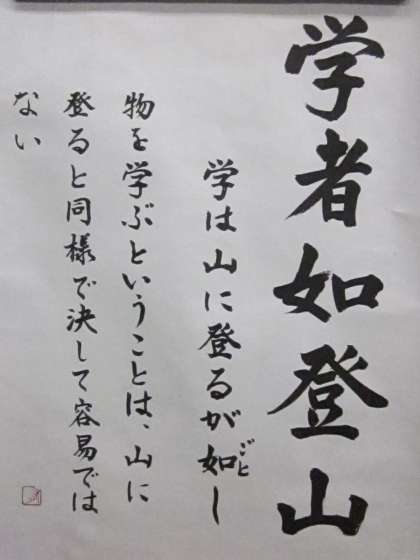 学者如登山
学は山に登るが如し
ごと
物を学ぶということは、山に
登ると同様で決して容易では
ない